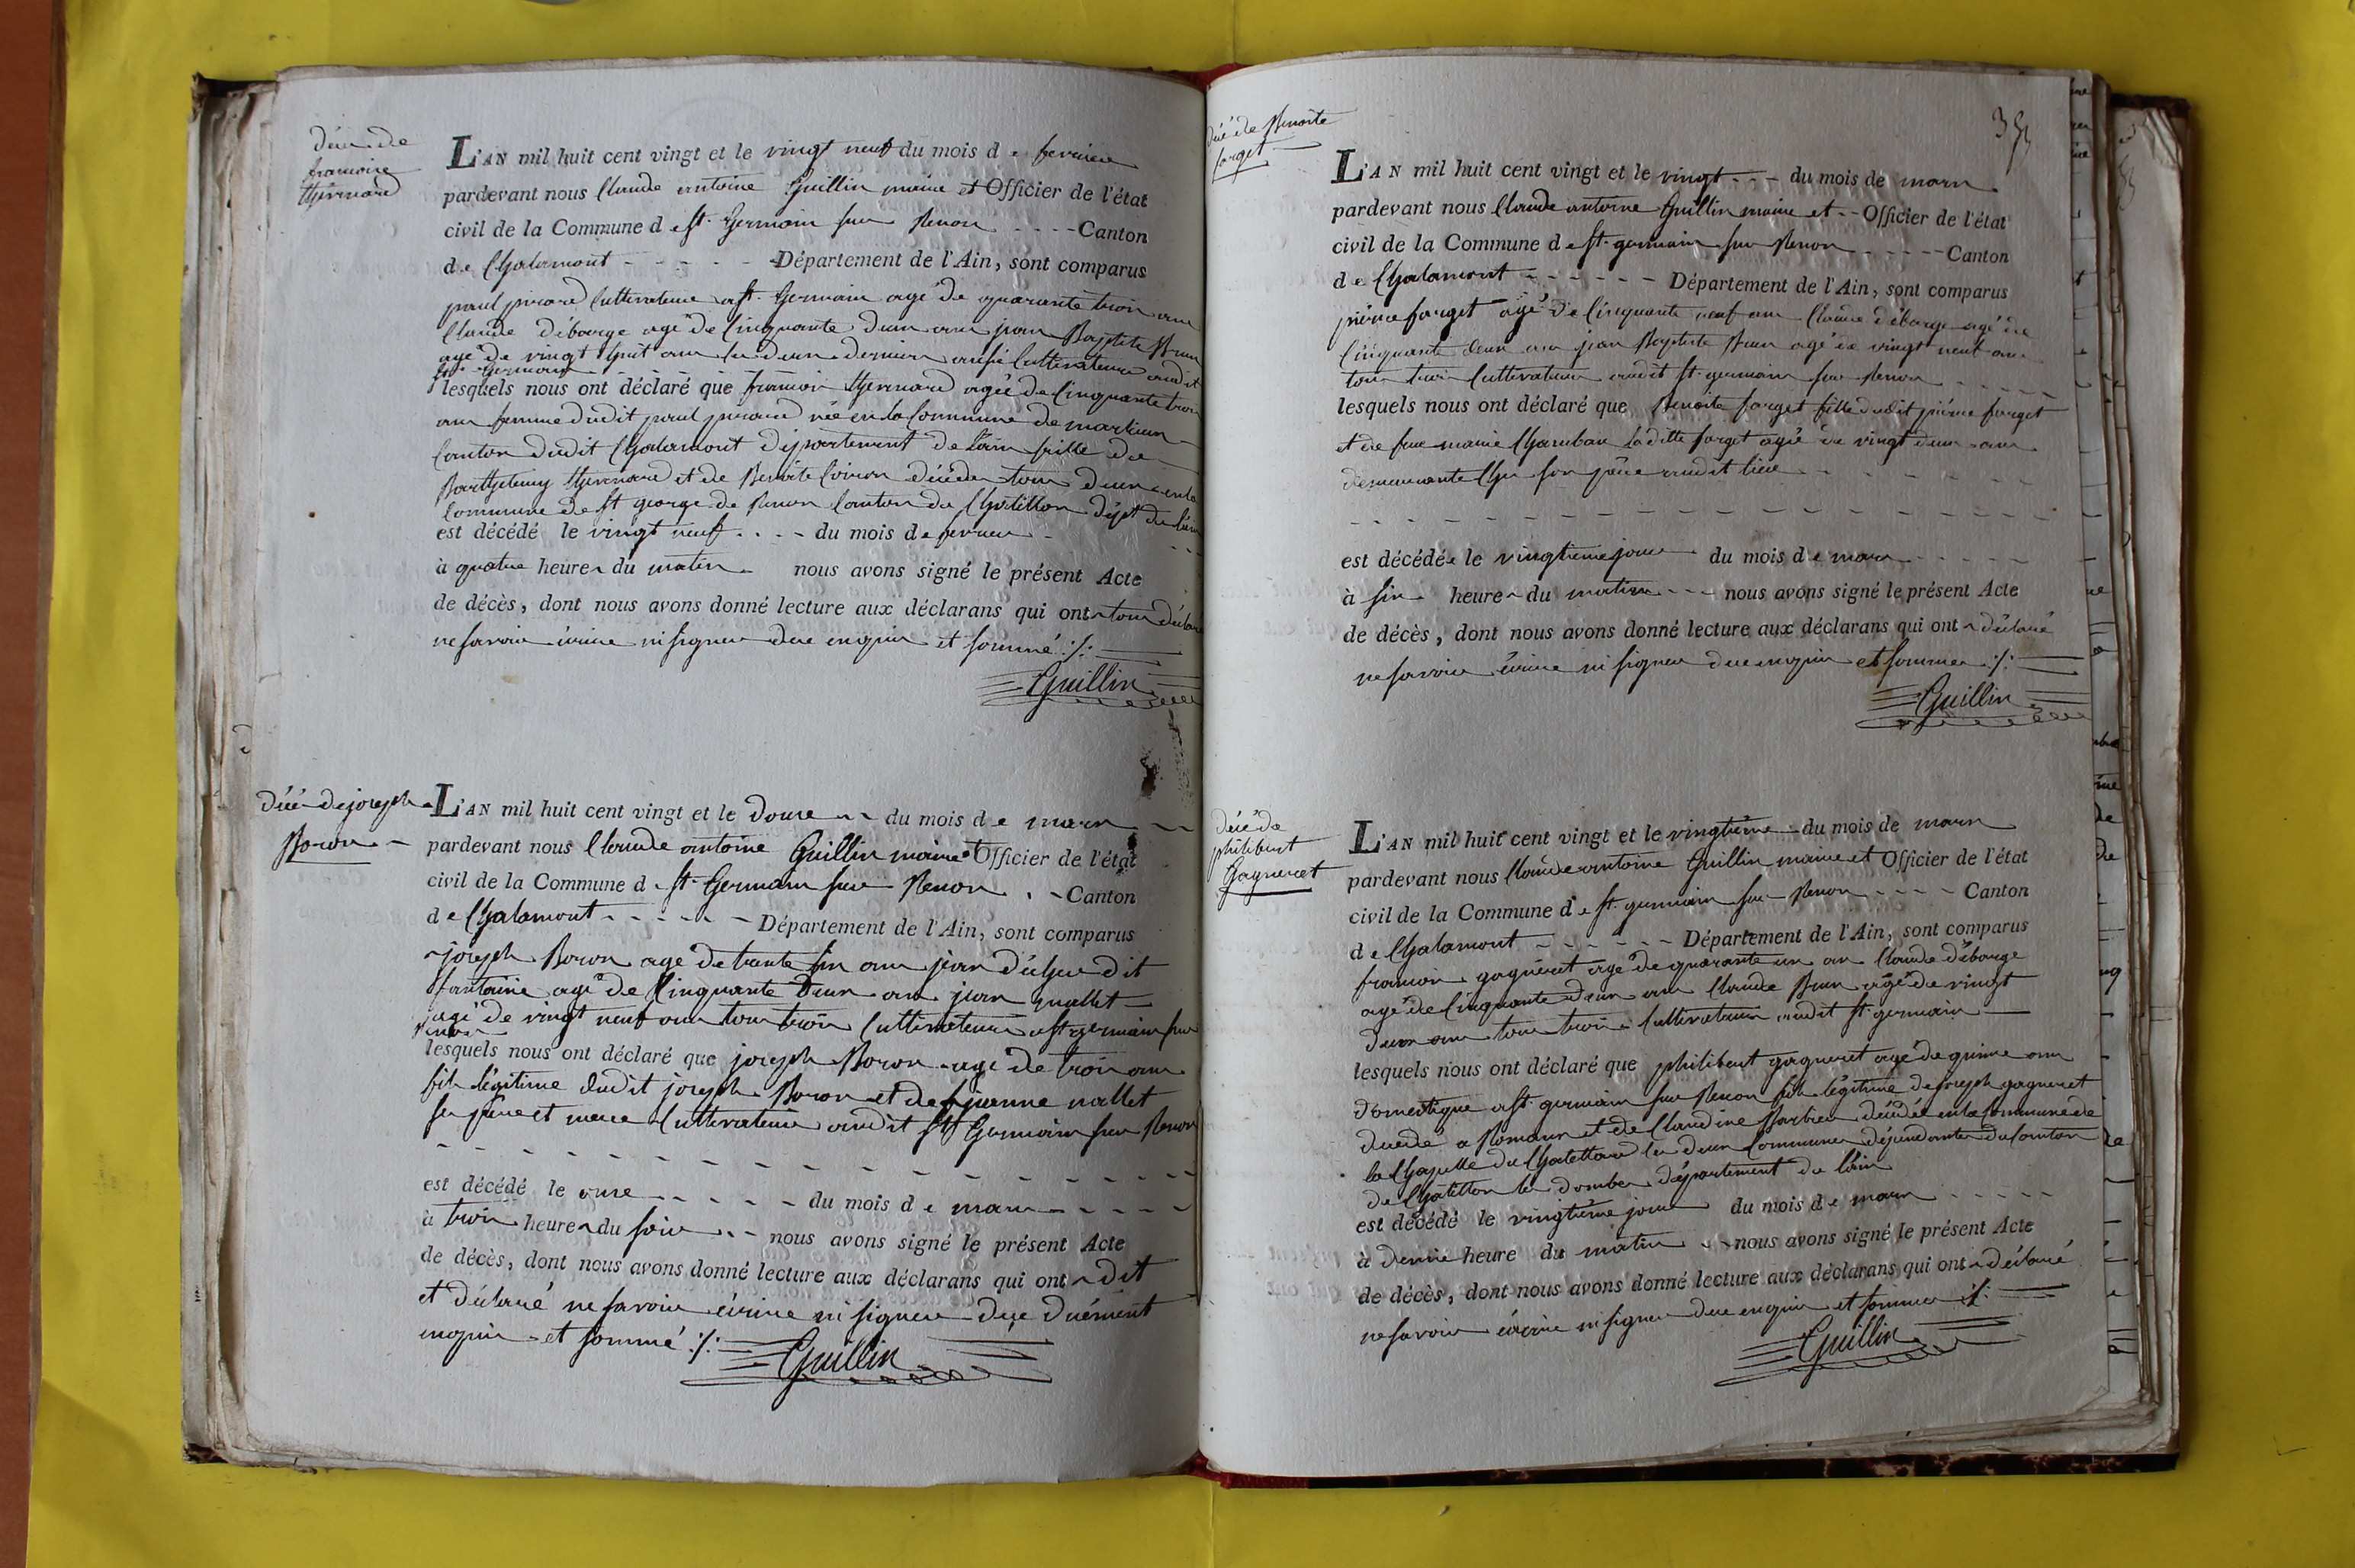 décès de
françoise
thévenard
L'AN mil huit cent vingt et le vingt neuf du mois de fevrier
pardevant nous Claude antoine Guillin maire et Officier de l'état
civil de la Commune de st. Germain sur Renon - - - - Canton
de Chalamont - - - - - Département de l'Ain, sont comparus
paul cultivateur a st. Germain agé de quarante trois ans
Claude débarge agé de cinquante deux ans jean Baptiste Brun
agé de vingt huit ans les deux derniers aussi cultivateurs audit
st. Germain
lesquels nous ont déclaré que agée de cinquante trois
ans femme dudit paul née en la Commune de marlieux
canton dudit Chalamont département de l'ain fille de
Barthelemy et de Benoite décédés tous deux en la
commune de st george de Renon canton de Chatillon dépt. de l'ain
est décédé le vingt neuf - - - - du mois de fevrier -
à quatre heures du matin - nous avons signé le présent Acte
de décès, dont nous avons donné lecture aux déclarans qui ont tous déclaré
ne savoir écrire ni signer de ce enquis et sommé ./.
Guillin
décés de joseph
Boron -
L'AN mil huit cent vingt et le douze - - du mois de mars
pardevant nous Claude antoine Guillin maire et Officier de l'état
civil de la Commune de st. Germain sur Renon - - Canton
de Chalamont - - - - - - Département de l'Ain, sont comparus
joseph Boron agé de trente six ans jean dit
fontaine agé de cinquante deux ans jean mallet
agé de vingt neuf ans tous trois cultivateurs a st germain sur
Renon
lesquels nous ont déclaré que joseph Boron agé de trois ans
fils légitime dudit joseph Boron et de pierrine mallet
ses père et mere cultivateurs audit st Germain sur Renon
est décédé le onze - - - - - du mois de mars - - - -
à trois heures du soir - - nous avons signé le présent Acte
de décès, dont nous avons donné lecture aux déclarans qui ont dit
et déclaré ne savoir écrire ni signer de ce duément
enquis et sommé ./.
Guillin
35
décé de Benoite
forget
L'AN mil huit cent vingt et le vingt - - - du mois de mars
pardevant nous Claude antoine Guillin maire et - - Officier de l'état
civil de la Commune de st. germain sur Renon - - - - - Canton
de Chalamont - - - - - - Département de l'Ain, sont comparus
pierre forget agé de cinquante neuf ans Claude débarge agé de
cinquante deux ans jean Baptiste Brun agé de vingt neuf ans
tous trois cultivateurs audit st. germain sur Renon - - - - -
lesquels nous ont déclaré que Benoite forget fille dudit pierre forget
et de feue marie Chambau laditte forget agée de vingt deux ans
demeurante chez son père audit lieu - - - - - -
est décédée le vingtieme jour du mois de mars - - - - -
à six heures du matin - - - nous avons signé le présent Acte
de décès, dont nous avons donné lecture aux déclarans qui ont déclaré
ne savoir écrire ni signer de ce enquis et sommer ./.
Guillin
décé de
philibert
Gagneret
L'AN mil huit cent vingt et le vingtième du mois de mars
pardevant nous Claude antoine Guillin maire et Officier de l'état
civil de la Commune de st. germain sur Renon - - - - Canton
de Chalamont - - - - - - Département de l'Ain, sont comparus
françois gagneret agé de quarante un an Claude débarge
agé de cinquante deux ans Claude Brun agé de vingt
deux ans tous trois cultivateurs audit st. germain
lesquels nous ont déclaré que philibert gagneret agé de quinze ans
domestique a st. germain sur Renon fils légitime de joseph gagneret
décédé a Romans et de Claudine Barbier décédée en la commune de
la Chapelle du Chatellard les deux communes dépendantes du canton
de Chatillon les dombes département de l'ain
est décédé le vingtième jour du mois de mars - - - - -
à demie heure du matin - - nous avons signé le présent Acte
de décès, dont nous avons donné lecture aux déclarans qui ont déclaré
ne savoir écrire ni signer de ce enquis et sommer ./.
Guillin